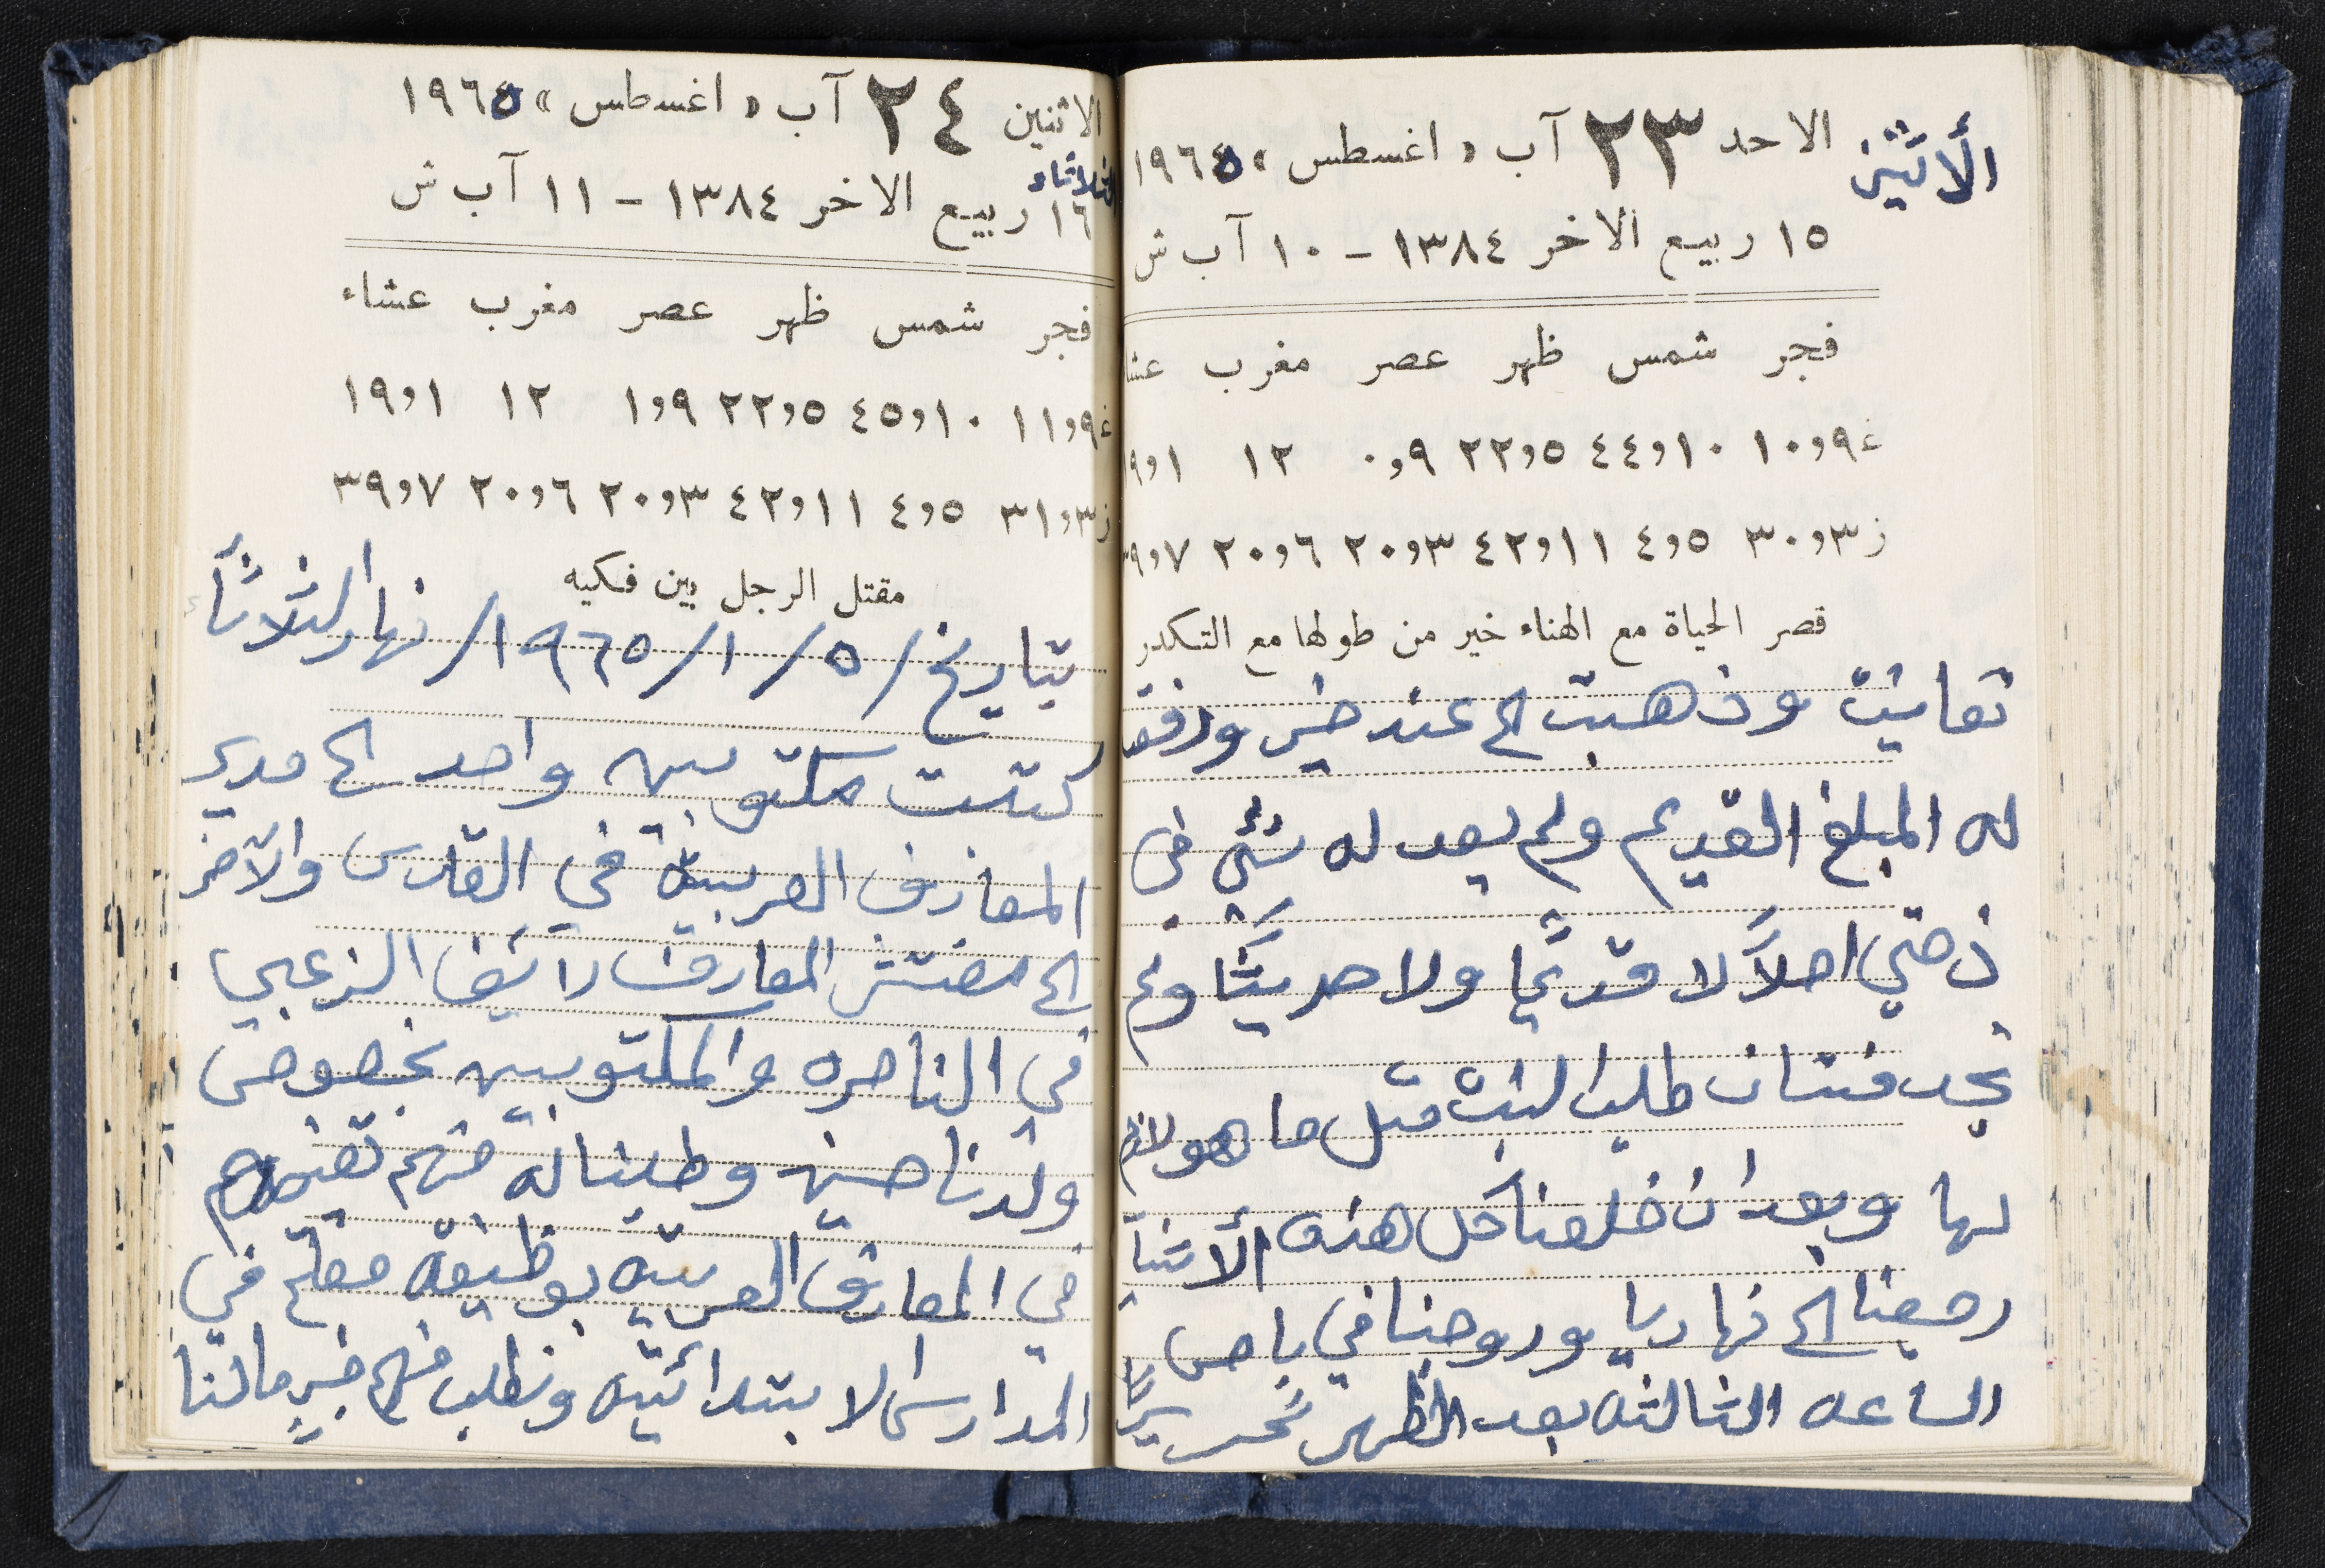 الأثنين
الاحد ٢٣ آب « اغسطس » ١٩٦٥
١٥ ربيع الاخر ١٣٨٤ - ١٠ آب ش
فجر شمس ظهر عصر مغرب عشا
غ ٩و١٠ ١٠و٤٤ ٥و٢٢ ٩و٠ ١٢ ١و١٩
ز ٣و٣٠ ٥و٤ ١١و٤٢ ٣و٢٠ ٦و٢٠ ٧و٣٩
قصر الحياة مع الهناء خير من طولها مع التكدر
وذهبت الى عند خير ودفعت
له المبلغ القديم ولم يعد له شيٌ في
ذمتي اصلاً لا قديمًا ولا حديثًا ولم
نجد فستان طلب البنت مثل ما هو لازم
لها وبعد ان خلصنا كل هذه الأشيآ
رجعنا الى نهاريا وروحنا في باص
الساعه الثالثه بعد الظهر تحريرًا
الاثنين ٢٤ آب « اغسطس » ١٩٦٥
الثلاثاء
١٦ ربيع الاخر ١٣٨٤ - ١١ آب ش
فجر شمس ظهر عصر مغرب عشاء
غ ٩و١١ ١٠و٤٥ ٥و٢٢ ٩و١ ١٢ ١و١٩
ز ٣و٣١ ٥و٤ ١١و٤٢ ٣و٢٠ ٦و٢٠ ٧و٣٩
مقتل الرجل بين فكيه
بتاريخ /٥/١/١٩٦٥/ نهار الثلاثاء
كتبت مكتوبين واحد الى مدير
المعارف العربية في القدس والآخر
الى مفتش المعارف رائف الزعبي
في الناصره والمكتوبين بخصوص
ولدنا حسين وطلبنا له منهم تعينه
في المعارف العربيّه بوظيفة معلّم في
المدارس الابتدائيّه ونطلب منهم خيرٍ مالنا